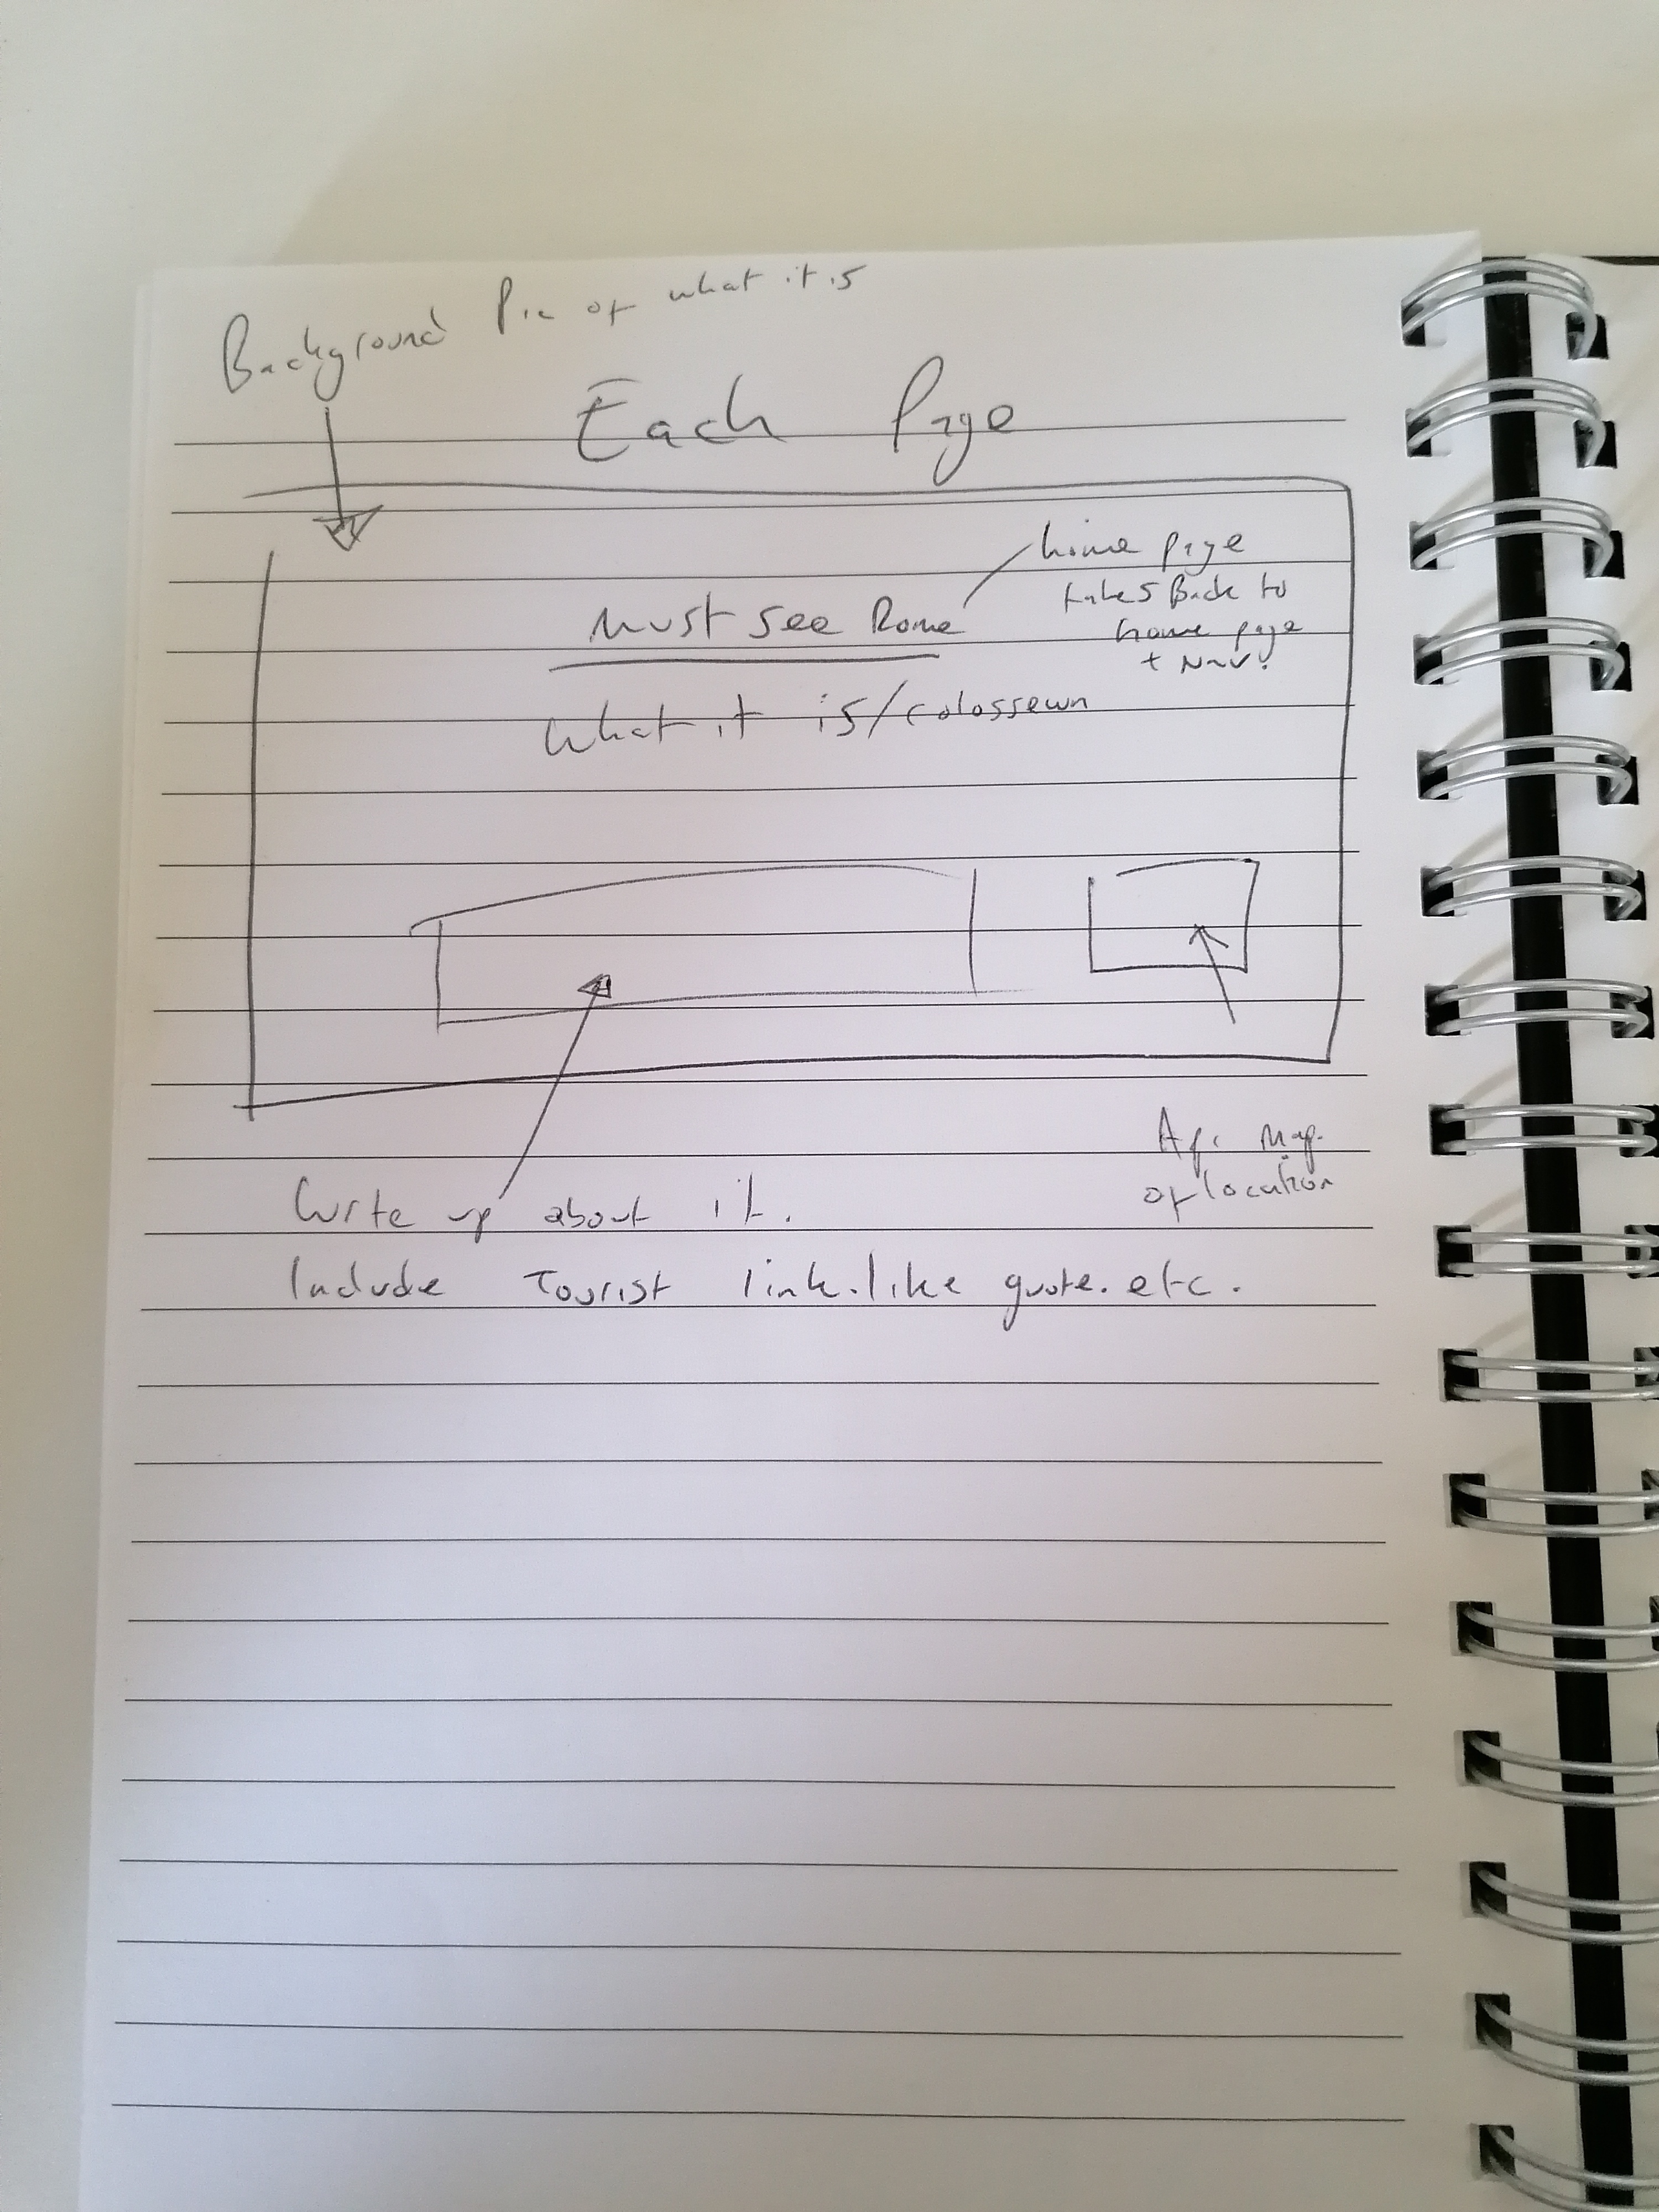 Background Pic of what it is
Each Page
home page
takes Back to
home page
+ Nav.
Must see Rome
What it is/colosseum
Api Map.
of location
Write up about it.
Include Tourist link.like quote.etc.